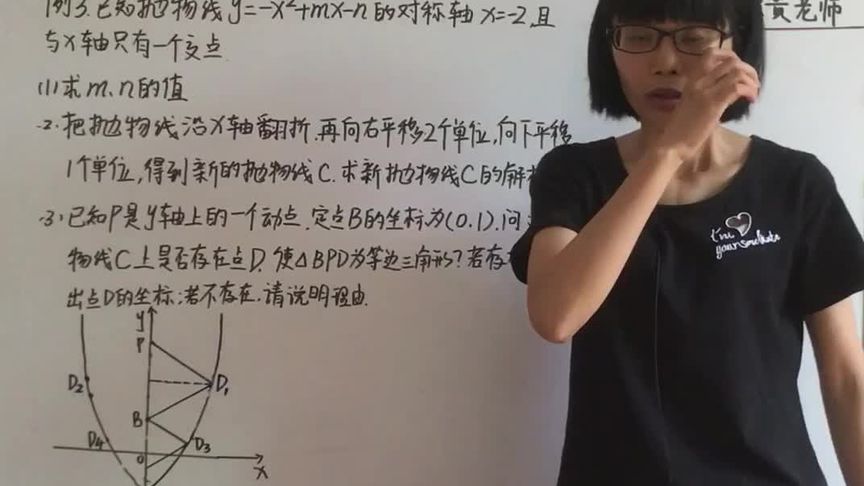 例3.已知抛物线y=-x²+mx-n的对称轴x=-2,且
与X轴只有一个交点.
(1)求m、n的值
-2·把抛物线沿X轴翻折.再向右平移2个单位,向下平移
1个单位,得到新的抛物线C.求新抛物线C的解
-3·已知P是y轴上的一个动点.定点B的坐标为(0.1).问
物线C上是否存在点D.使△BPD为等边三角形?若存
出点D的坐标;若不存在.请说明理由.
黄老师
y
P
D₂
D₁
B
D₄
D₃
O
X